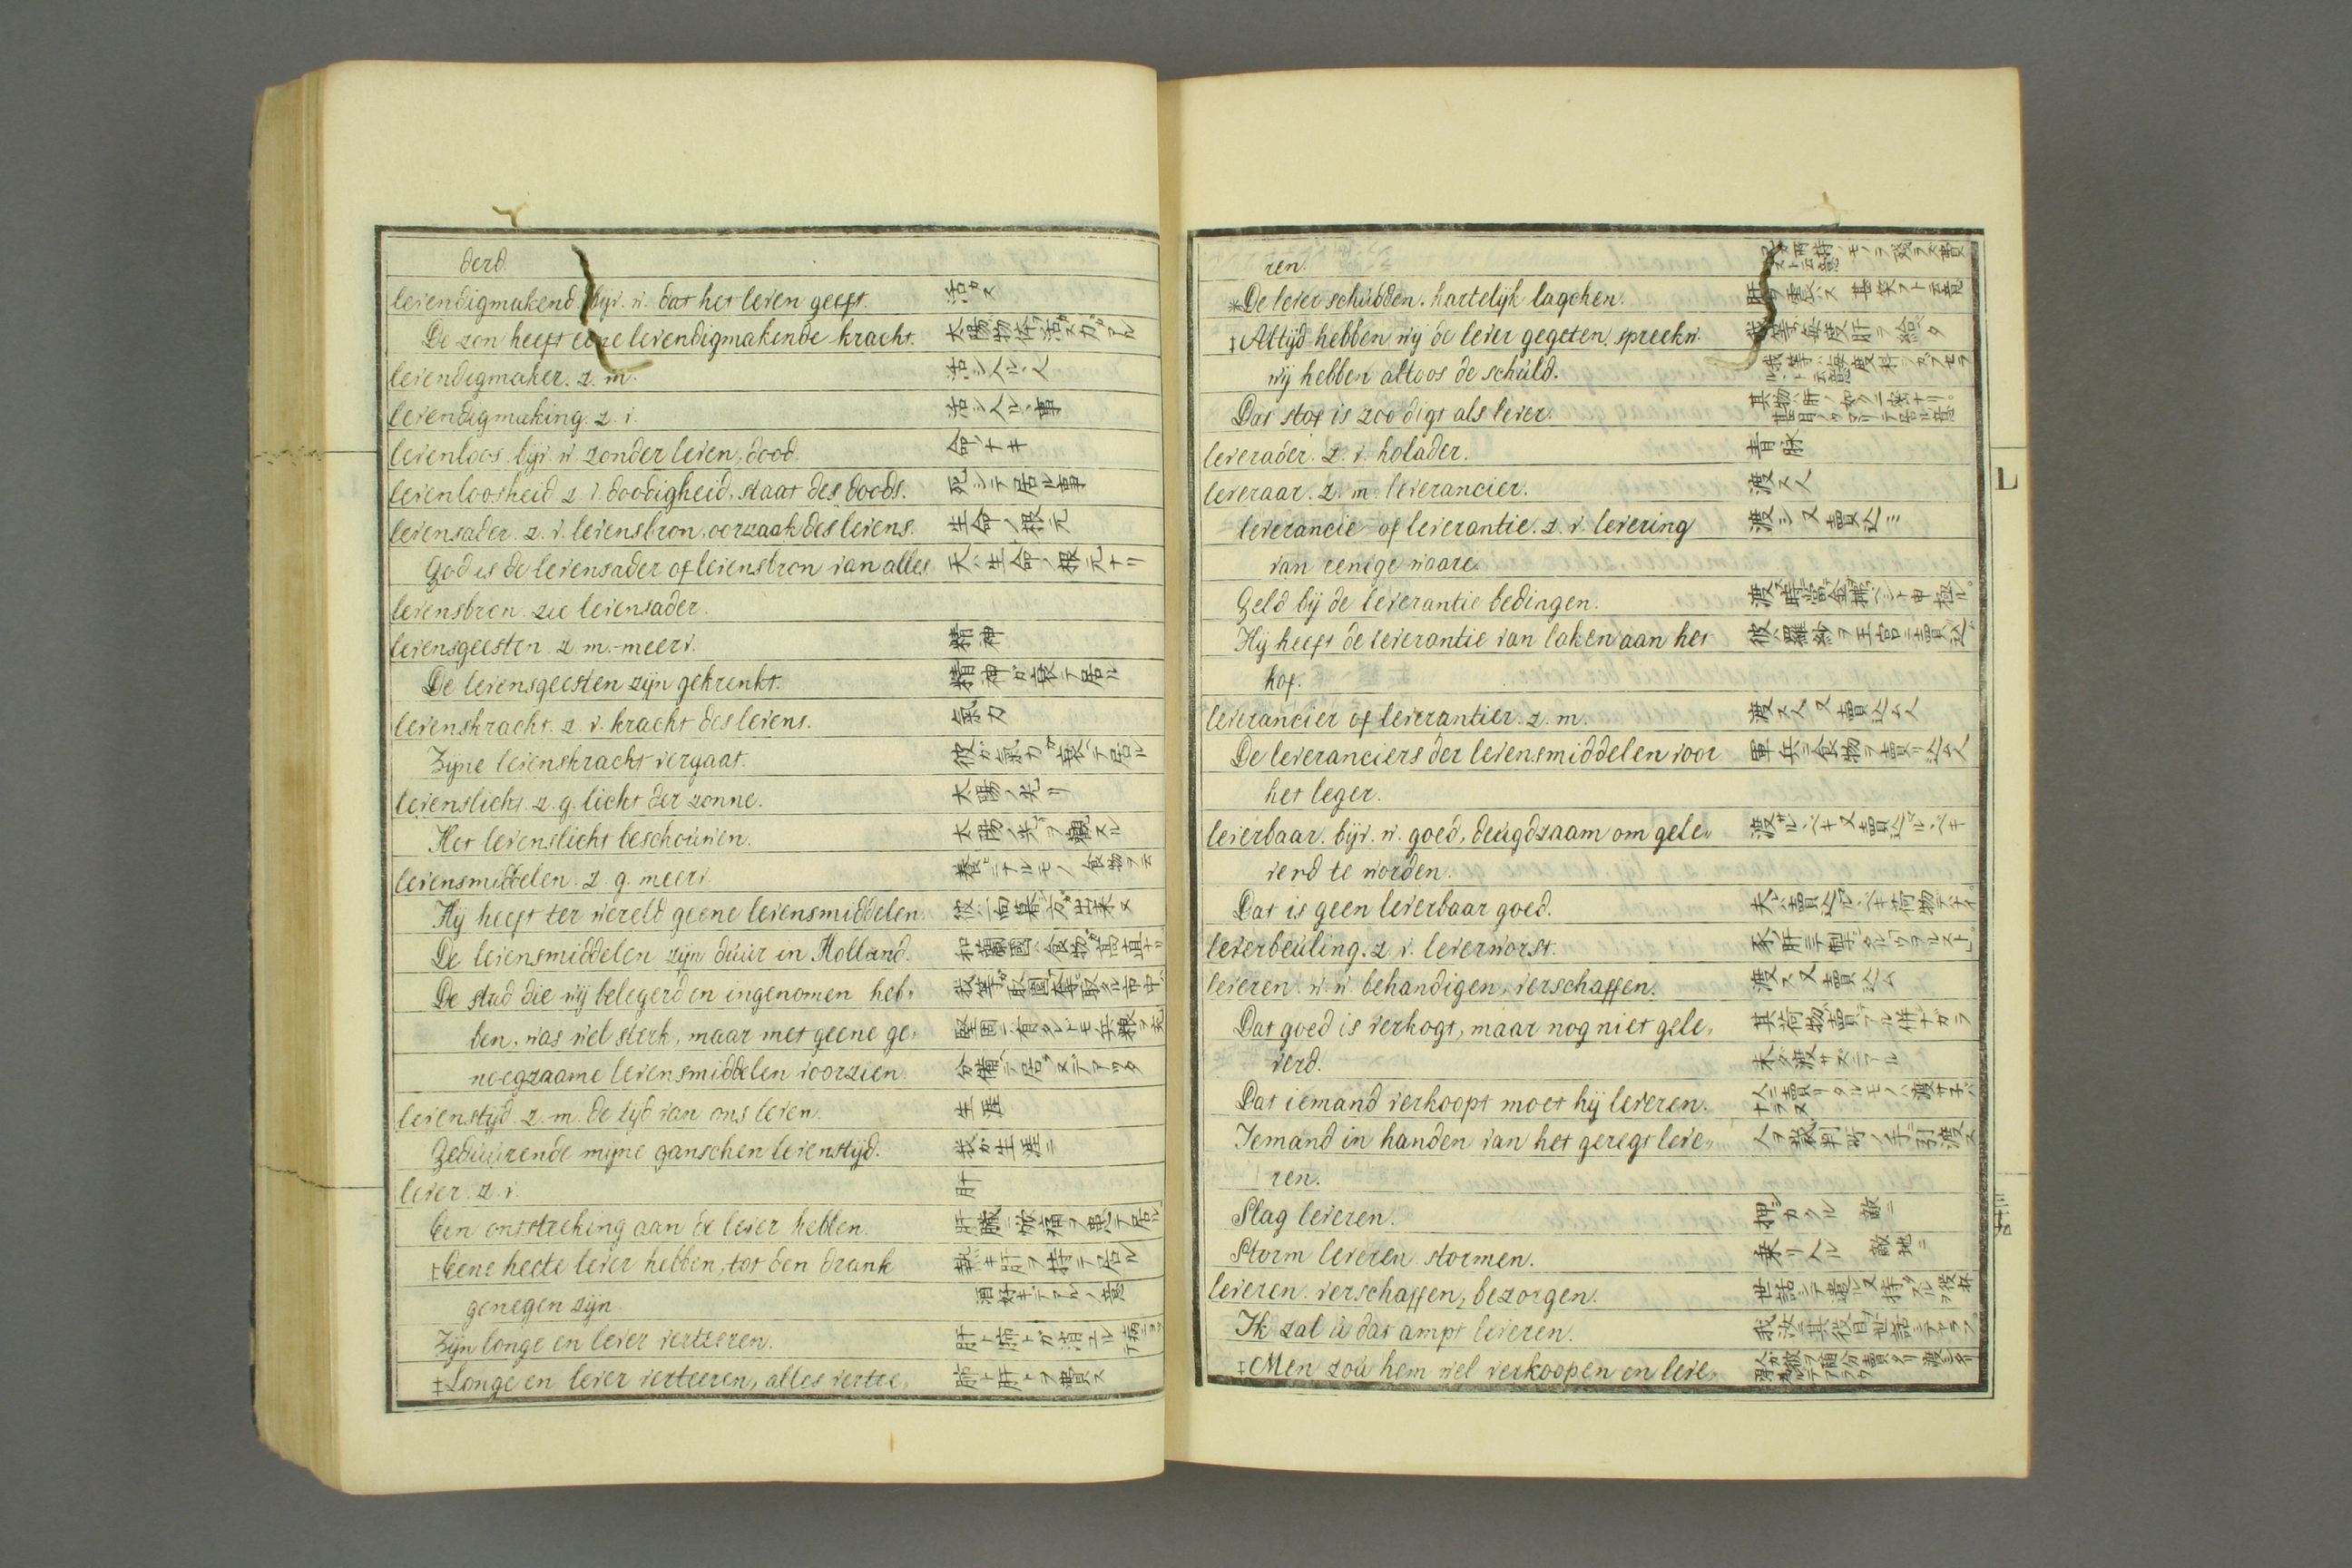 derd.
levendigmakend. bijv. w. dat het leven geeft. 活カス
De zon heeft eene levendigmakende kracht.
levendigmaker. z. m. 活シ人ルヽ人
levendigmaking. z. v. 活シ人ルヽ事
levenloos. bijv. w. zonder leven, dood. 命ノナキ
levenloosheid z. v. doodigheid, staat des doods. 死シテ居ル事
levensader. z. v. levensbron, oorzaak des levens. 生命ノ根元
God is de levensader of levensbron van alles. 天ハ生命ノ根元ナリ
levensbron. zie levensader.
levensgeesten. z. m. meerv. 精神
De levensgeesten zijn gekrenkt. 精神ガ衰ヘテ居ル
levenskracht. z. v. kracht des levens. 氣力
Zijne levenskracht vergaat. 彼ガ氣力ガ衰ヘテ居ル
levenslicht. z. g. licht der zonne. 太陽ノ光リ
Het levenslicht beschouwen. 太陽ノ光リヲ觀スル
levensmiddelen. z. g. meerv. 養ヒニナルモノ 食物ヲ云
Hij heeft ter wereld geene levensmiddelen.
De levensmiddelen zijn duur in Holland. 和蘭國ハ食物ガ高直ナリ
De stad die wij belegerd en ingenomen heb,
ben, was wel sterk, maar met geene ge,
noegzaame levensmiddelen voorzien.
levenstijd. z. m. de tijd van ons leven. 生涯
Geduurende mijne ganschen levenstijd. 我ガ生涯ニ
lever. z. v. 肝
Een ontsteking aan de lever hebben.
‡Eene heete lever hebben, tot den drank 熱キ肝ヲ持テ居ル
genegen zijn. 酒好キデアルノ意
Zijn longe en lever verteeren.
‡Longe en lever verteeren, alles vertee, 肺ト肝トヲ費ス
ren.
*De lever schudden. hartelijk lagchen.
‡Altijd hebben wij de lever gegeten. spreekw.
wij hebben altoos de schuld.
Dat stof is zoo digt als lever.
leverader. z. v. holader. 青脉
leveraar. z. m. leverancier. 渡ス人
leverancie of leverantie. z. v. levering 渡シ又賣込ミ
van eenige waare.
Geld bij de leverantie bedingen.
Hij heeft de leverantie van laken aan het 彼ハ羅紗ヲ王宮ニ賣込ム
hof.
leverancier of leverantier. z. m. 渡ス人又賣込ム人
De leveranciers der levensmiddelen voor 軍兵ニ食物ヲ賣リ込ム人
het leger.
leverbaar. bijv. w. goed, deugdzaam om gele,
verd te worden.
Dat is geen leverbaar goed.
leverbeuling. z. v. leverworst.
leveren. w. w. behandigen, verschaffen. 渡ス又賣込ム
Dat goed is verkogt, maar nog niet gele,
verd. 未タ渡サズニアル
Dat iemand verkoopt moet hij leveren. 人ニ賣リタルモノハ渡サ子バナラヌ
Iemand in handen van het geregt leve, 人ヲ裁判所ノ手ニ引渡ス
ren.
Slag leveren. 押シカクル 敵ニ
Storm leveren. stormen. 乗リ入ル 敵地ニ
leveren. verschaffen, bezorgen.
Ik zal u dat ampt leveren.
‡Men zou hem wel verkoopen en leve,
L